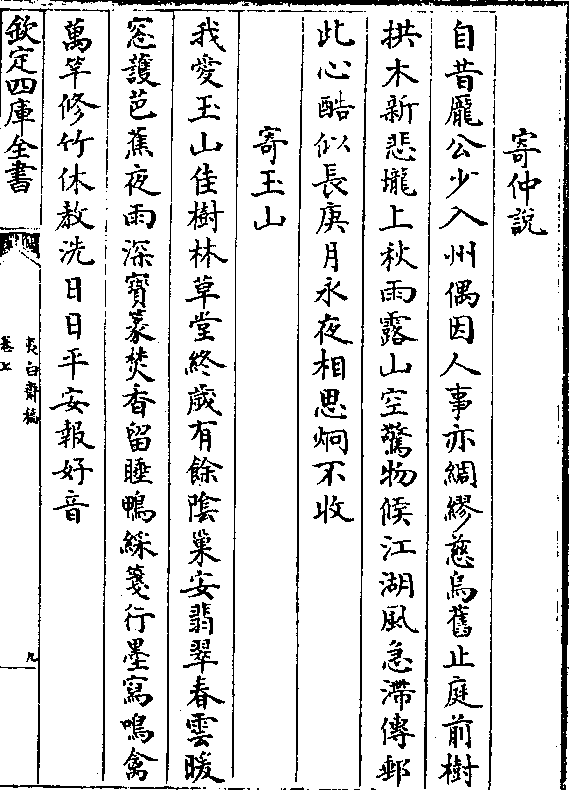 寄仲說
自昔龐公少入州偶因人事亦綢繆慈烏舊止庭前樹
拱木新悲壠上秋雨露山空驚物候江湖風急滯傳郵
此心酷似長庚月永夜相思炯不收
寄玉山
我愛玉山佳樹林草堂終歲有餘陰巢安翡翠春雲暖
窓護芭蕉夜雨深寳篆焚香留睡鴨綵箋行墨寫鳴禽
萬竿修竹休教洗日日平安報好音
欽定四庫全書
夷白齋稿
卷七
九